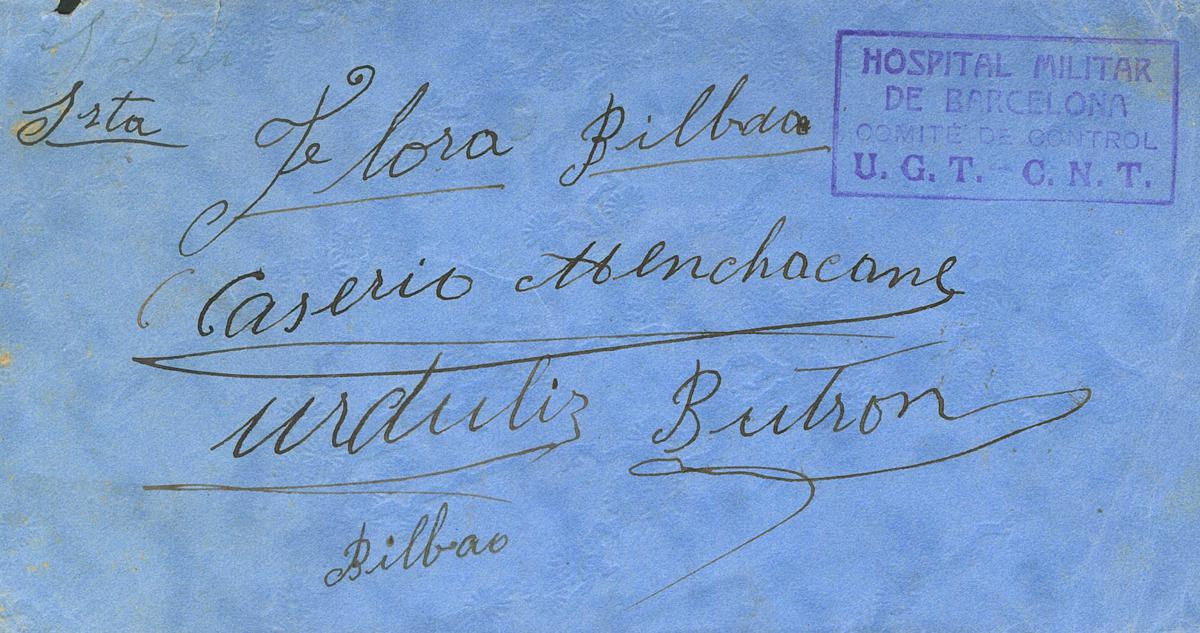 Srta Flora Bilbao
HOSPITAL MILITAR
DE BARCELONA
COMITÉ DE CONTROL
U. G. T. - C. N. T.
Caserio Menchacane
Urduliz Butron
Bilbao